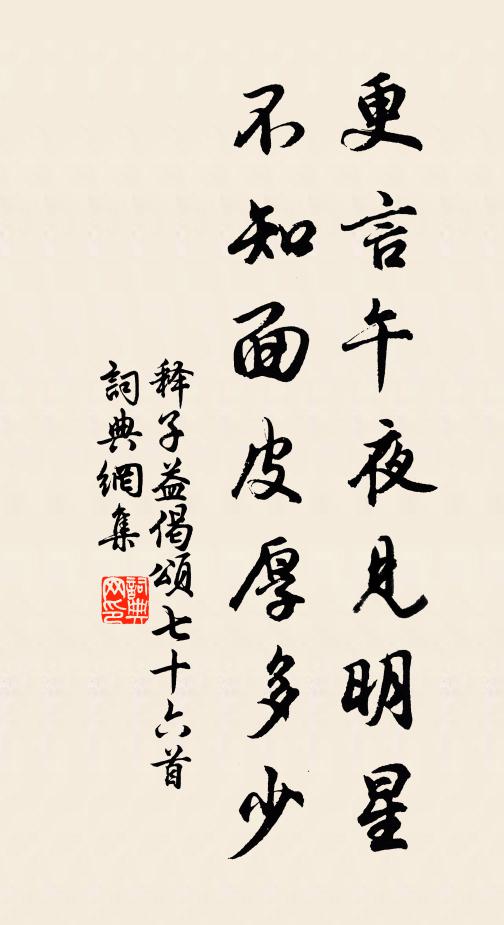 更言午夜見明星
不知面皮厚多少
释子益偈頌七十六首
詞典網集
詞典网印